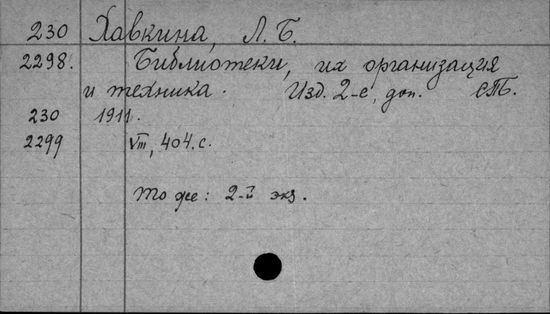 230 Хавкина, Л. Б.
2298. Библиотеки, их организация
и техника. Изд. 2-е, доп. СПб.
230 1911.
2299 VIII, 404. с.
То же: 2-й экз.